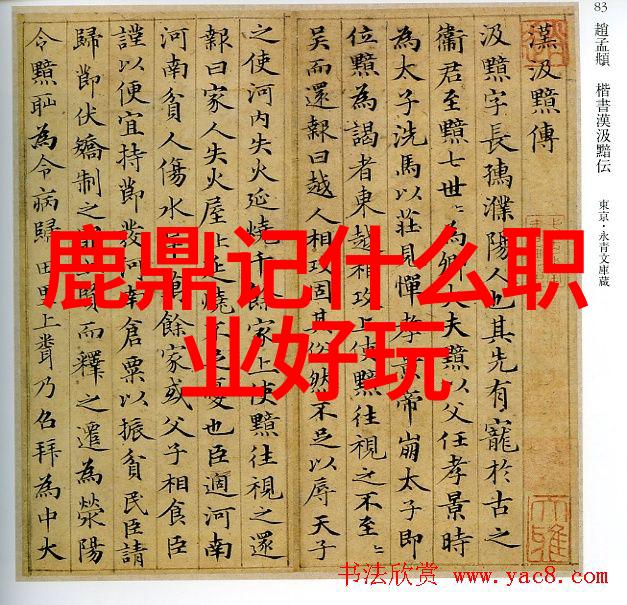 83
趙孟頫 楷書漢汲黯伝 東京・永青文庫蔵
漢汲黯傳
汲黯字長孺濮陽人也其先有寵於古之
衛君至黯七世〻為卿大夫黯以父任孝景時
為太子洗馬以莊見憚孝景帝崩太子即
位黯為謁者東越相攻上使黯往視之不至〻
吳而還報曰越人相攻固其俗然不足以辱天子
之使河内失火延燒千餘家上使黯往視之還
報曰家人失火屋比延燒不足憂也臣適河南
河南貧人傷水旱萬餘家或父子相食臣
謹以便宜持節發河南倉粟以振貧民臣請
歸節伏矯制之罪上賢而釋之遷為滎陽
令黯恥為令病歸田里上聞乃召拜為中大
鹿鼎记什么职
业好玩
书法欣赏 www.yac8.com